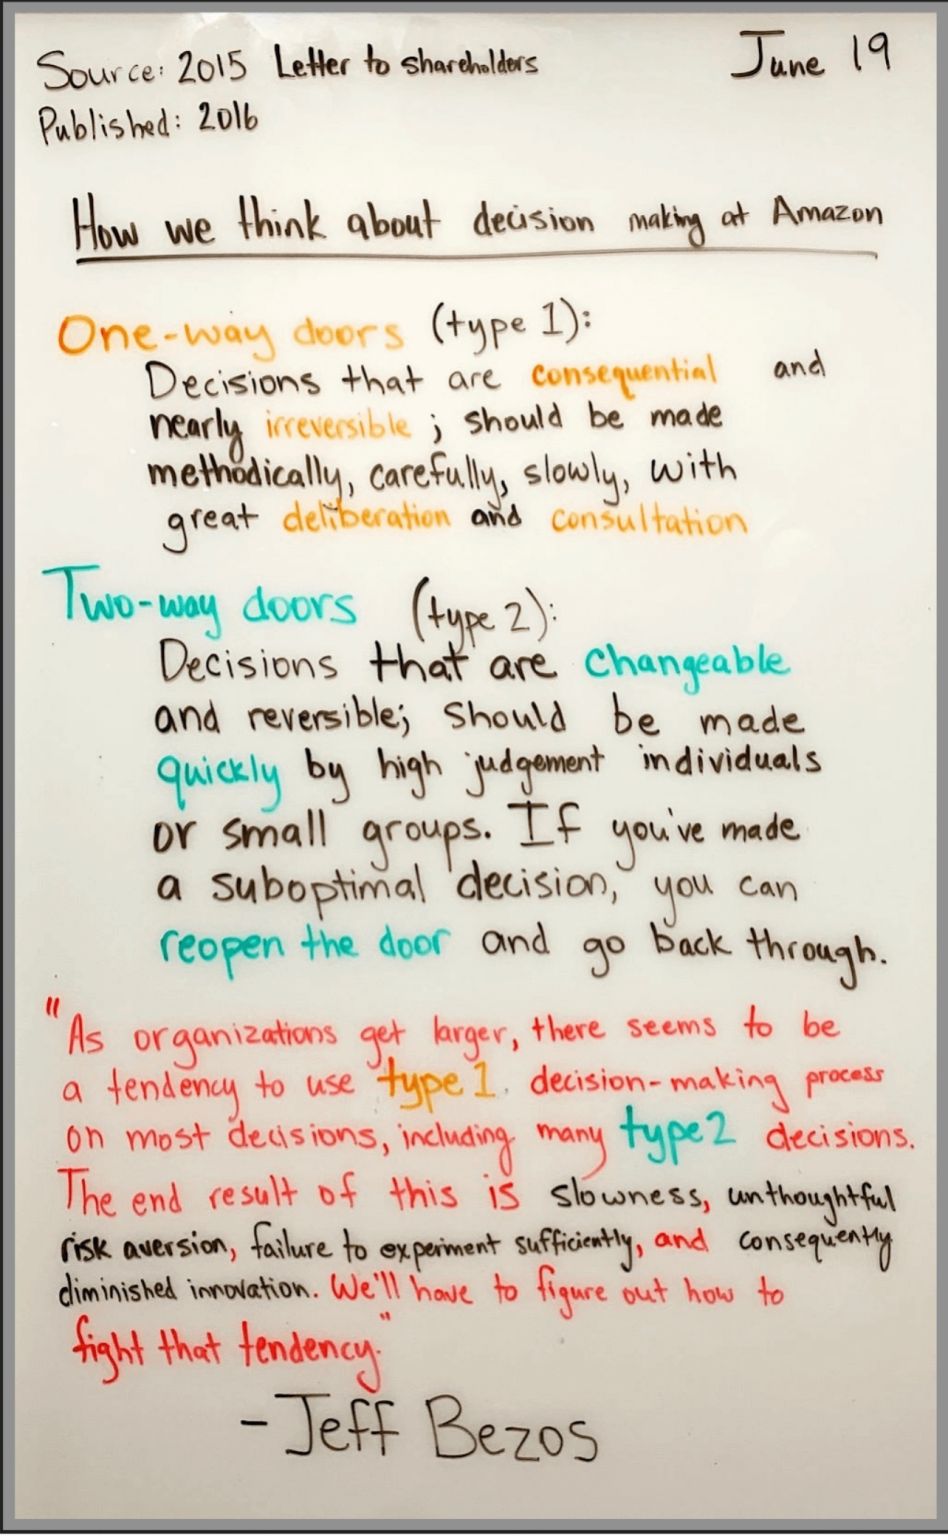 Source: 2015 Letter to shareholders
June 19
Published: 2016
How we think about decision making at Amazon
One-way doors (type 1):
Decisions that are consequential and
nearly irreversible; should be made
methodically, carefully, slowly, with
great deliberation and consultation
Two-way doors (type 2):
Decisions that are changeable
and reversible; should be made
quickly by high judgement individuals
or small groups. If you've made
a suboptimal decision, you can
reopen the door and go back through.
"As organizations get larger, there seems to be
a tendency to use type 1 decision-making process
on most decisions, including many type 2 decisions.
The end result of this is slowness, unthoughtful
risk aversion, failure to experiment sufficiently, and consequently
diminished innovation. We'll have to figure out how to
fight that tendency."
- Jeff Bezos